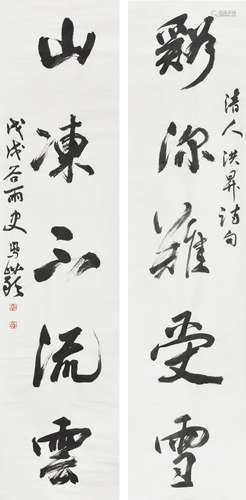 清人洪昇诗句
谿深難受雪
山凍不流雲
戊戌谷雨史